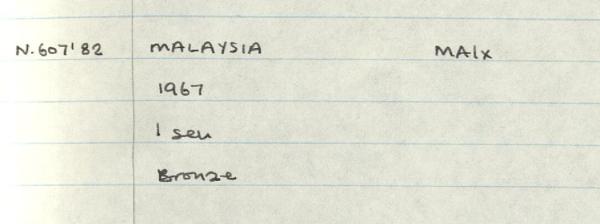 N.607'82 MALAYSIA MAIX
1967
1 sen
Bronze